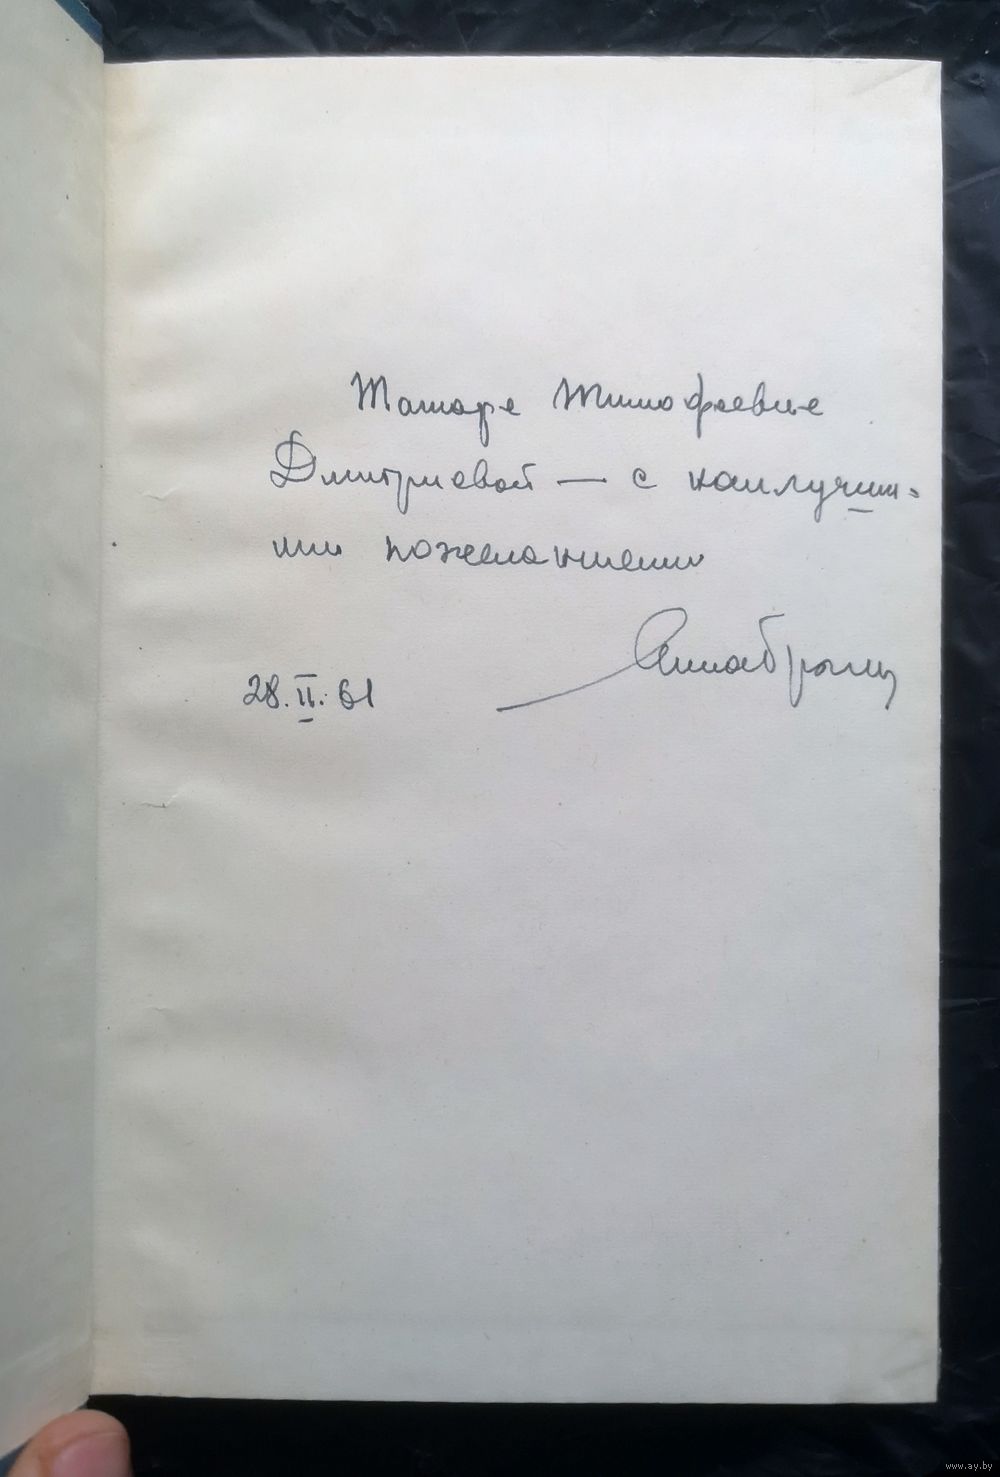 Тамаре Тимофеевне
Дмитриевой — с наилучши-
ми пожеланиями
28.II.61
www.ay.by